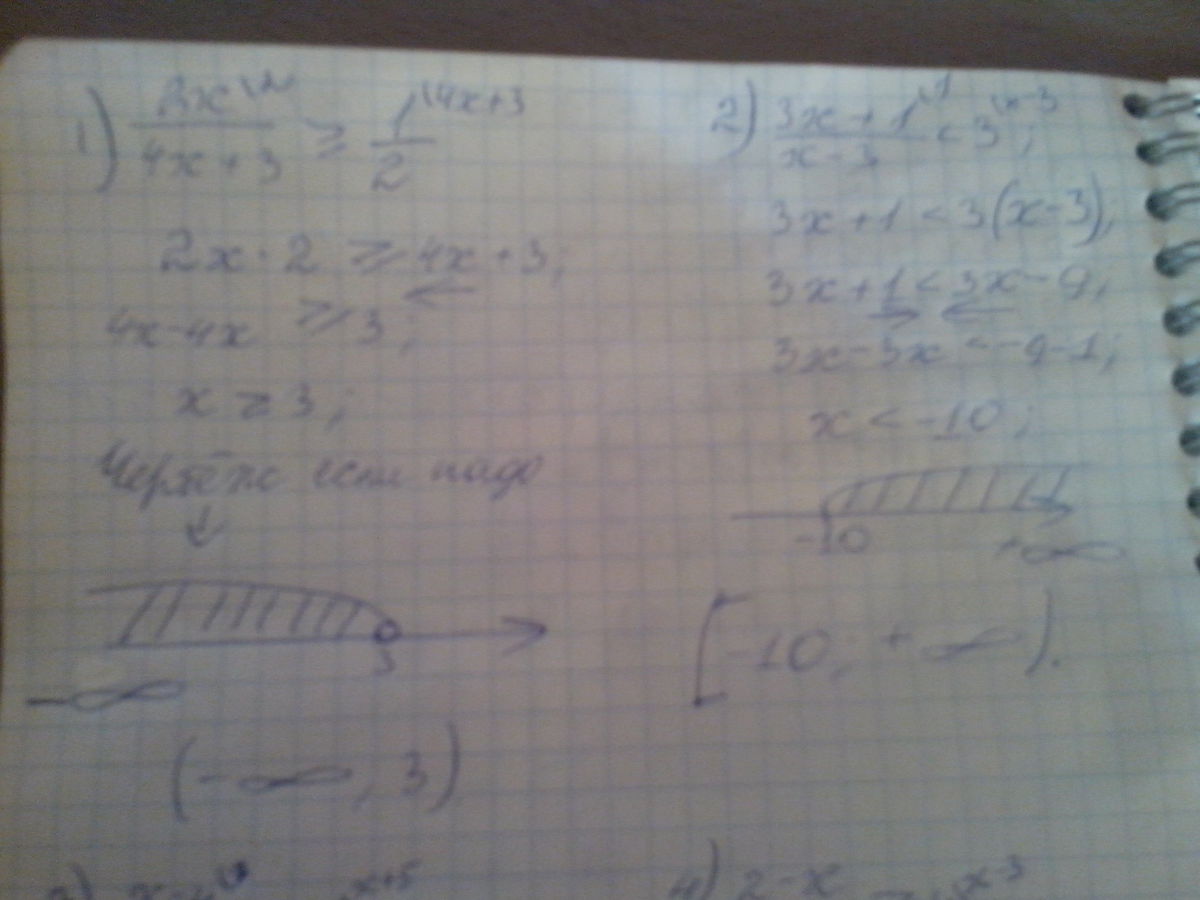 1) 2x\2 / 4x+3 ≥ 1\4x+3 / 2
2x·2 ≥ 4x+3;
4x-4x ≥ 3;
x ≥ 3;
Чертёж если надо
3
-∞
(-∞, 3)
2) 3x+1\1 / x-3 < 3\x-3;
3x+1 < 3(x-3);
3x+1 < 3x-9;
3x-3x < -9-1;
x < -10;
-10 +∞
[-10; +∞).
3) x+5
4) 2-x \x-3